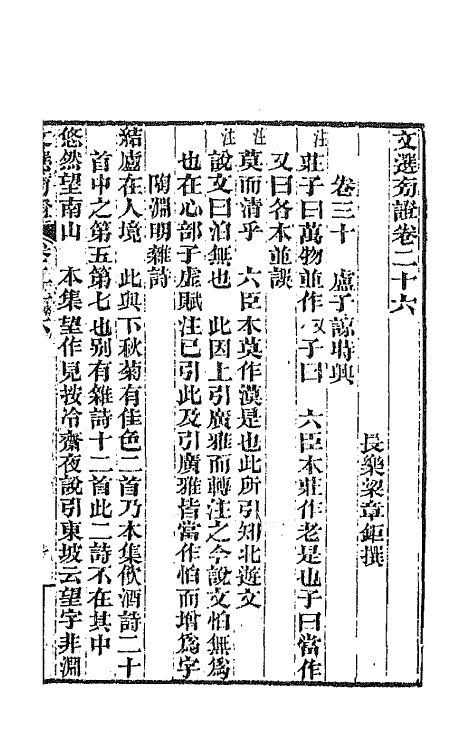 文選旁證卷二十六
長樂梁章鉅撰
卷三十 盧子諒時興
注莊子曰萬物並作又子曰 六臣本莊作老是也子曰當作
又曰各本並誤
注莫而清乎 六臣本莫作漠是也此所引知北遊文
注說文曰泊無也 此因上引廣雅而轉注之今說文怕無為
也在心部子虛賦注已引此及引廣雅皆當作怕而增為字
陶淵明雜詩
結廬在人境 此與下秋菊有佳色二首乃本集飲酒詩二十
首中之第五第七也別有雜詩十二首此二詩不在其中
悠然望南山 本集望作見按冷齋夜說引東坡云望字非淵